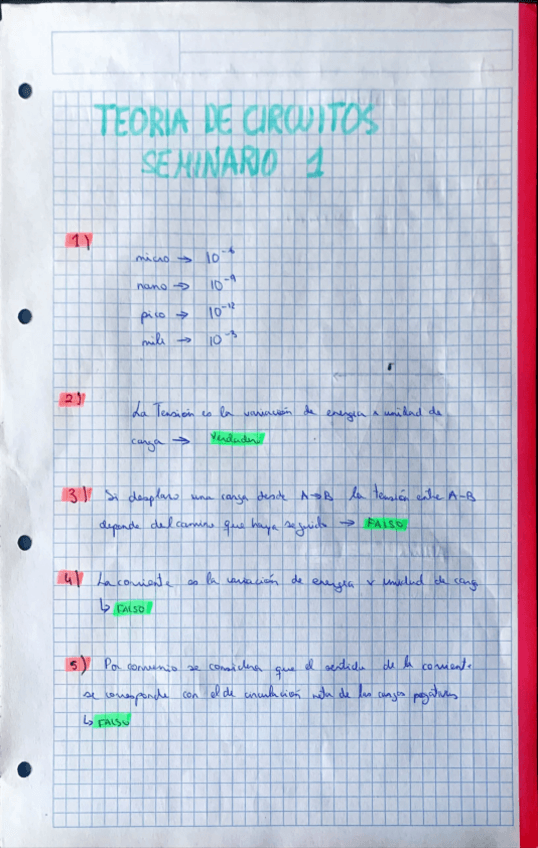 TEORIA DE CIRCUITOS
SEMINARIO 1
1)
micro → 10⁻⁶
nano → 10⁻⁹
pico → 10⁻¹²
mili → 10⁻³
2) La Tensión es la variación de energia x unidad de
carga → Verdadero
3) Si desplazo una carga desde A→B la tensión entre A-B
depende del camino que haya seguido → FALSO
4) La corriente es la variación de energia x unidad de carga
↳ FALSO
5) Por convenio se considera que el sentido de la corriente
se corresponde con el de circulación neta de las cargas negativas
↳ FALSO